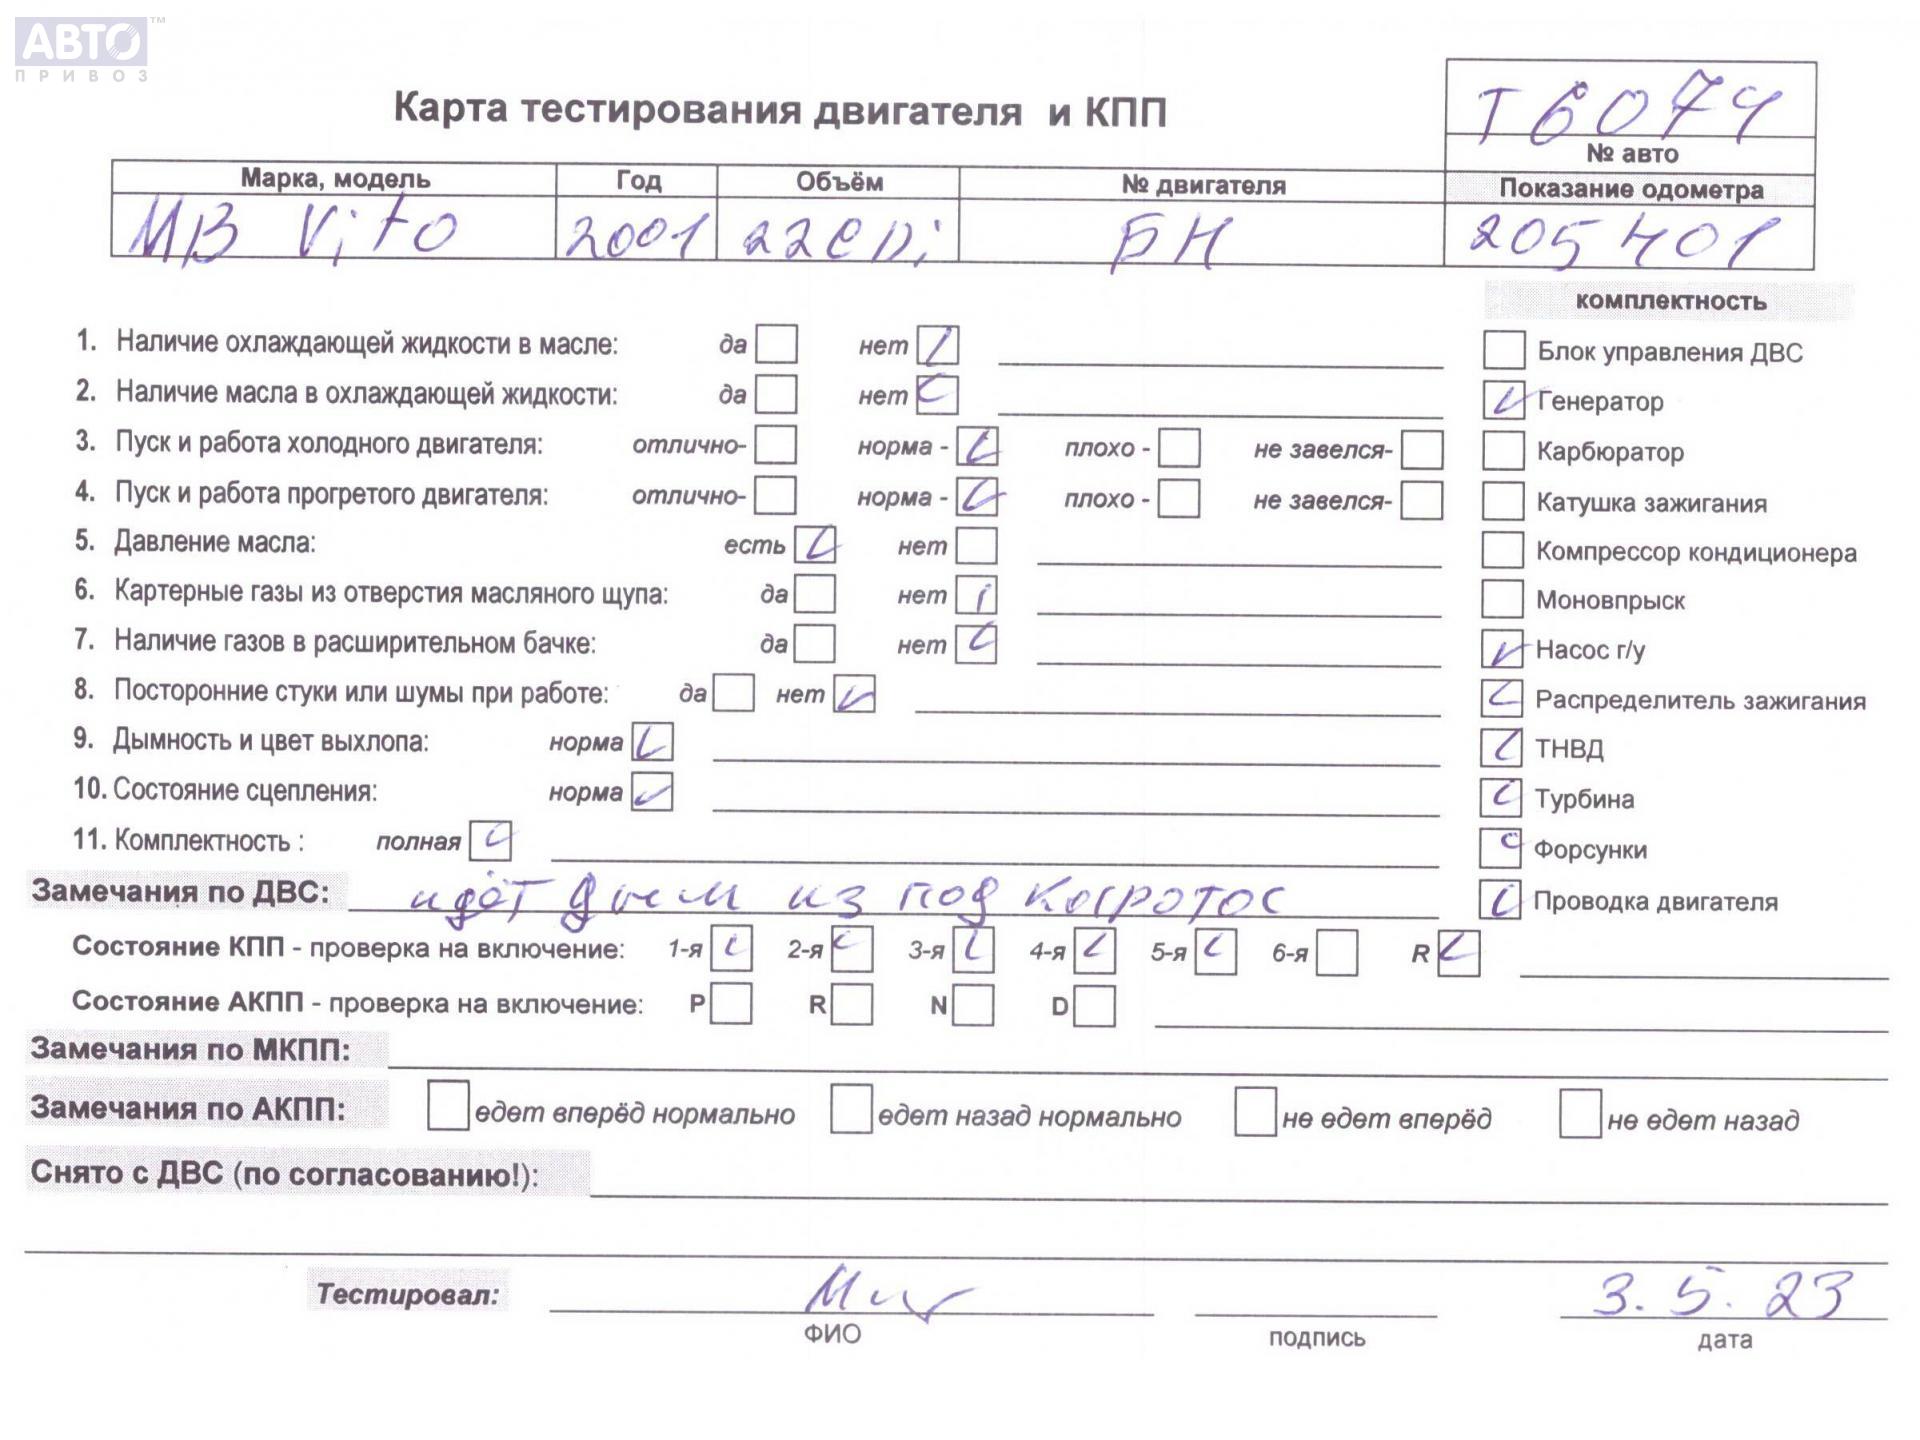 АВТО™
ПРИВОЗ
Карта тестирования двигателя и КПП
Т6074
№ авто
Марка, модель Год Объём № двигателя Показание одометра
MB Vito 2001 22CDi БН 205401
комплектность
1. Наличие охлаждающей жидкости в масле: да нет Блок управления ДВС
2. Наличие масла в охлаждающей жидкости: да нет Генератор
3. Пуск и работа холодного двигателя: отлично- норма - плохо - не завелся- Карбюратор
4. Пуск и работа прогретого двигателя: отлично- норма - плохо - не завелся- Катушка зажигания
5. Давление масла: есть нет Компрессор кондиционера
6. Картерные газы из отверстия масляного щупа: да нет Моновпрыск
7. Наличие газов в расширительном бачке: да нет Насос г/у
8. Посторонние стуки или шумы при работе: да нет Распределитель зажигания
9. Дымность и цвет выхлопа: норма ТНВД
10. Состояние сцепления: норма Турбина
11. Комплектность : полная Форсунки
Замечания по ДВС: идёт дым из под Проводка двигателя
Состояние КПП - проверка на включение: 1-я 2-я 3-я 4-я 5-я 6-я R
Состояние АКПП - проверка на включение: P R N D
Замечания по МКПП:
Замечания по АКПП: едет вперёд нормально едет назад нормально не едет вперёд не едет назад
Снято с ДВС (по согласованию!):
Тестировал: 3.5.23
ФИО подпись дата